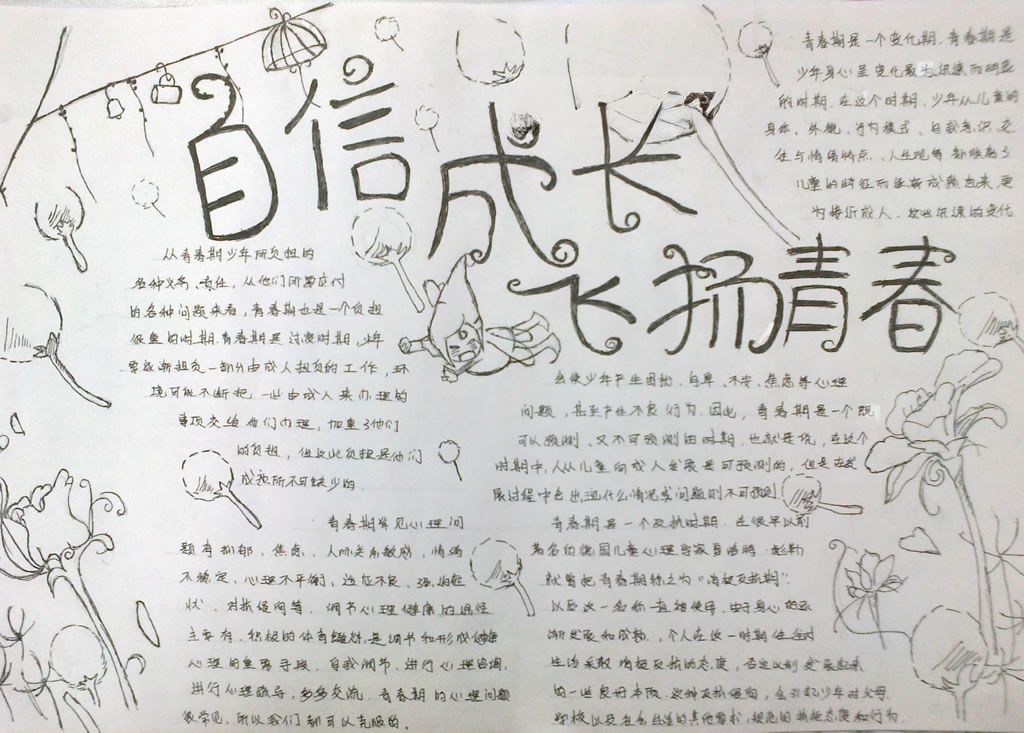 自信
成长
飞扬青春
青春期是一个变化期.青春期是
少年身心呈变化最为迅速而明显
的时期.在这个时期,少年从儿童的
身体、外貌、行为模式、自我意识、交
往与情绪特点、人生观等都脱离了
儿童的特征而逐渐成熟起来,更
为接近成人.这些迅速的变化
会使少年产生困扰、自卑、不安、焦虑等心理
问题,甚至产生不良行为.因此,青春期是一个既
可以预测、又不可预测的时期.也就是说,在这个
时期中,人从儿童向成人发展是可预测的,但是在发
展过程中会出现什么情况或问题则不可预测
从青春期少年所负担的
各种义务、责任,从他们所需应付
的各种问题来看,青春期也是一个负担
很重的时期.青春期是过渡时期,少年
要逐渐担负一部分由成人担负的工作,环
境可能不断把一些由成人来办理的
事项交给他们办理,加重了他们
的负担,但这些负担是他们
成熟所不可缺少的.
青春期常见心理问
题有抑郁、焦虑、人际关系敏感,情绪
不稳定、心理不平衡,适应不良、强迫症
状、对抗倾向等.调节心理健康的途径
主要有.积极的体育锻炼是调节和形成健康
心理的重要手段.自我调节.进行心理咨询,
进行心理疏导,多多交流.青春期的心理问题
很常见,所以我们都可以克服的.
青春期是一个反抗时期.在很早以前
著名的德国儿童心理学家
就曾把青春期称之为“消极反抗期”.
以后这一名称一直被使用.由于身心的逐
渐发展和成熟,个人在这一时期往往对
生活采取消极反抗的态度,否定以前发展起来
的一些良好本质.这种反抗倾向,会引起少年对父母、
学校以及社会生活的其他要求、规范的抗拒态度和行为.